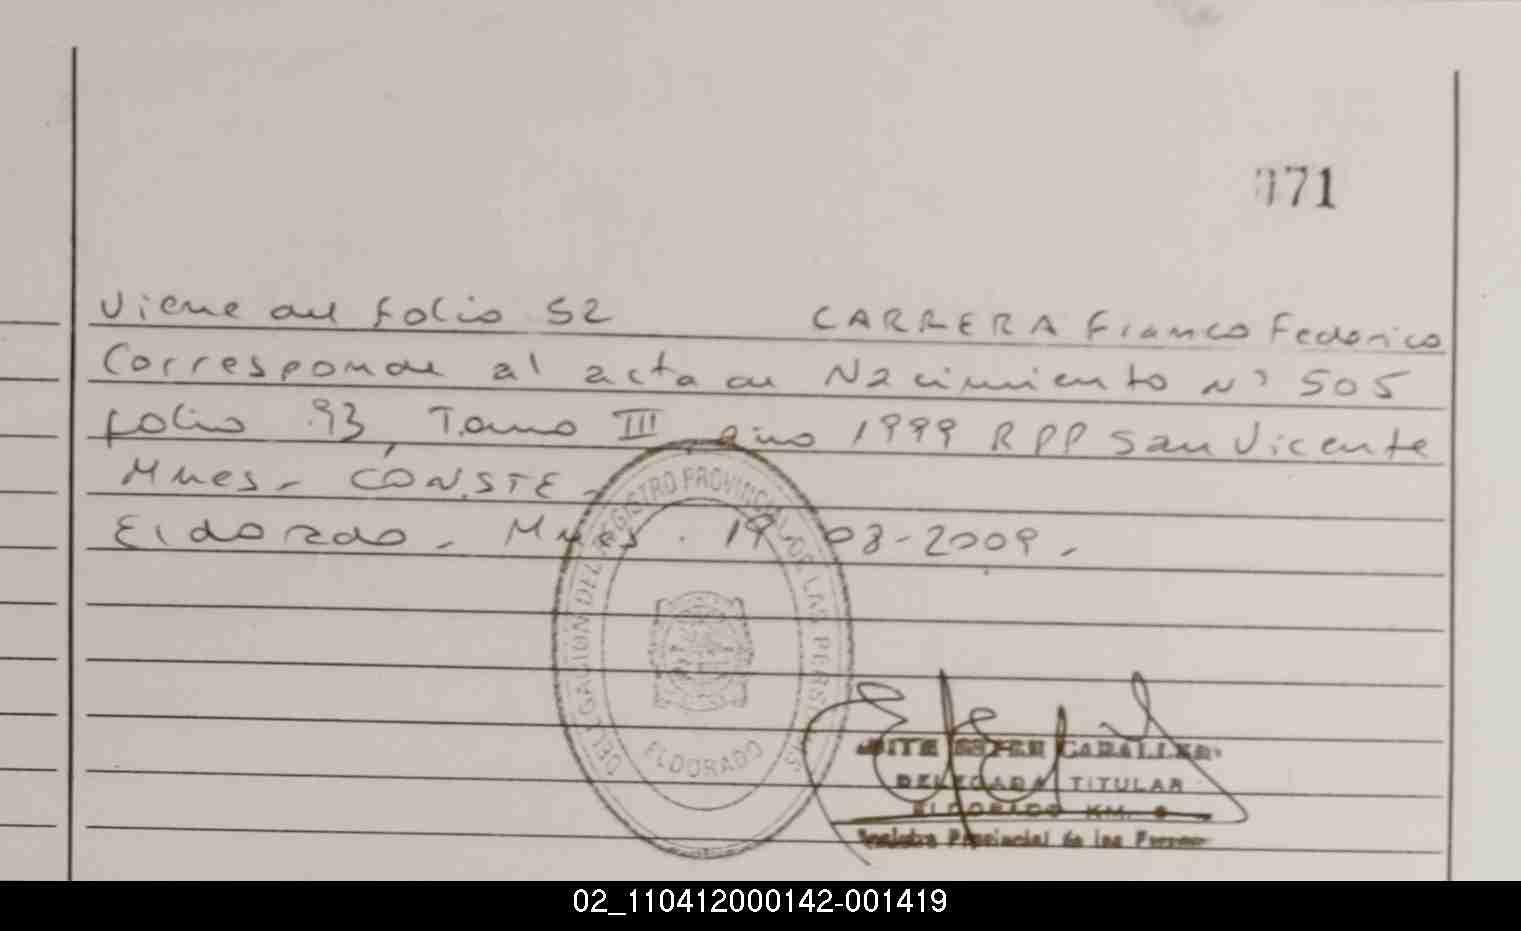 071
Viene del folio 52 CARRERA Franco Federico
Corresponde al acta de Nacimiento N° 505
folio 93, Tomo III año 1999 RPP San Vicente
Mnes- CONSTE-
Eldorado - Mnes. 19 08-2009.
DELEGACION DEL REGISTRO PROVINCIAL DE LAS PERSONAS
ELDORADO
ESTER CABALLERO
DELEGADA TITULAR
ELDORADO KM. 9
Registro Provincial de las Personas
02_110412000142-001419